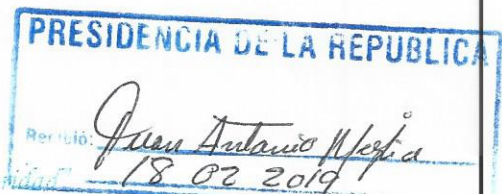 PRESIDENCIA DE LA REPUBLICA
Recibió: Juan Antonio Mejia
idad" 18 02 2019